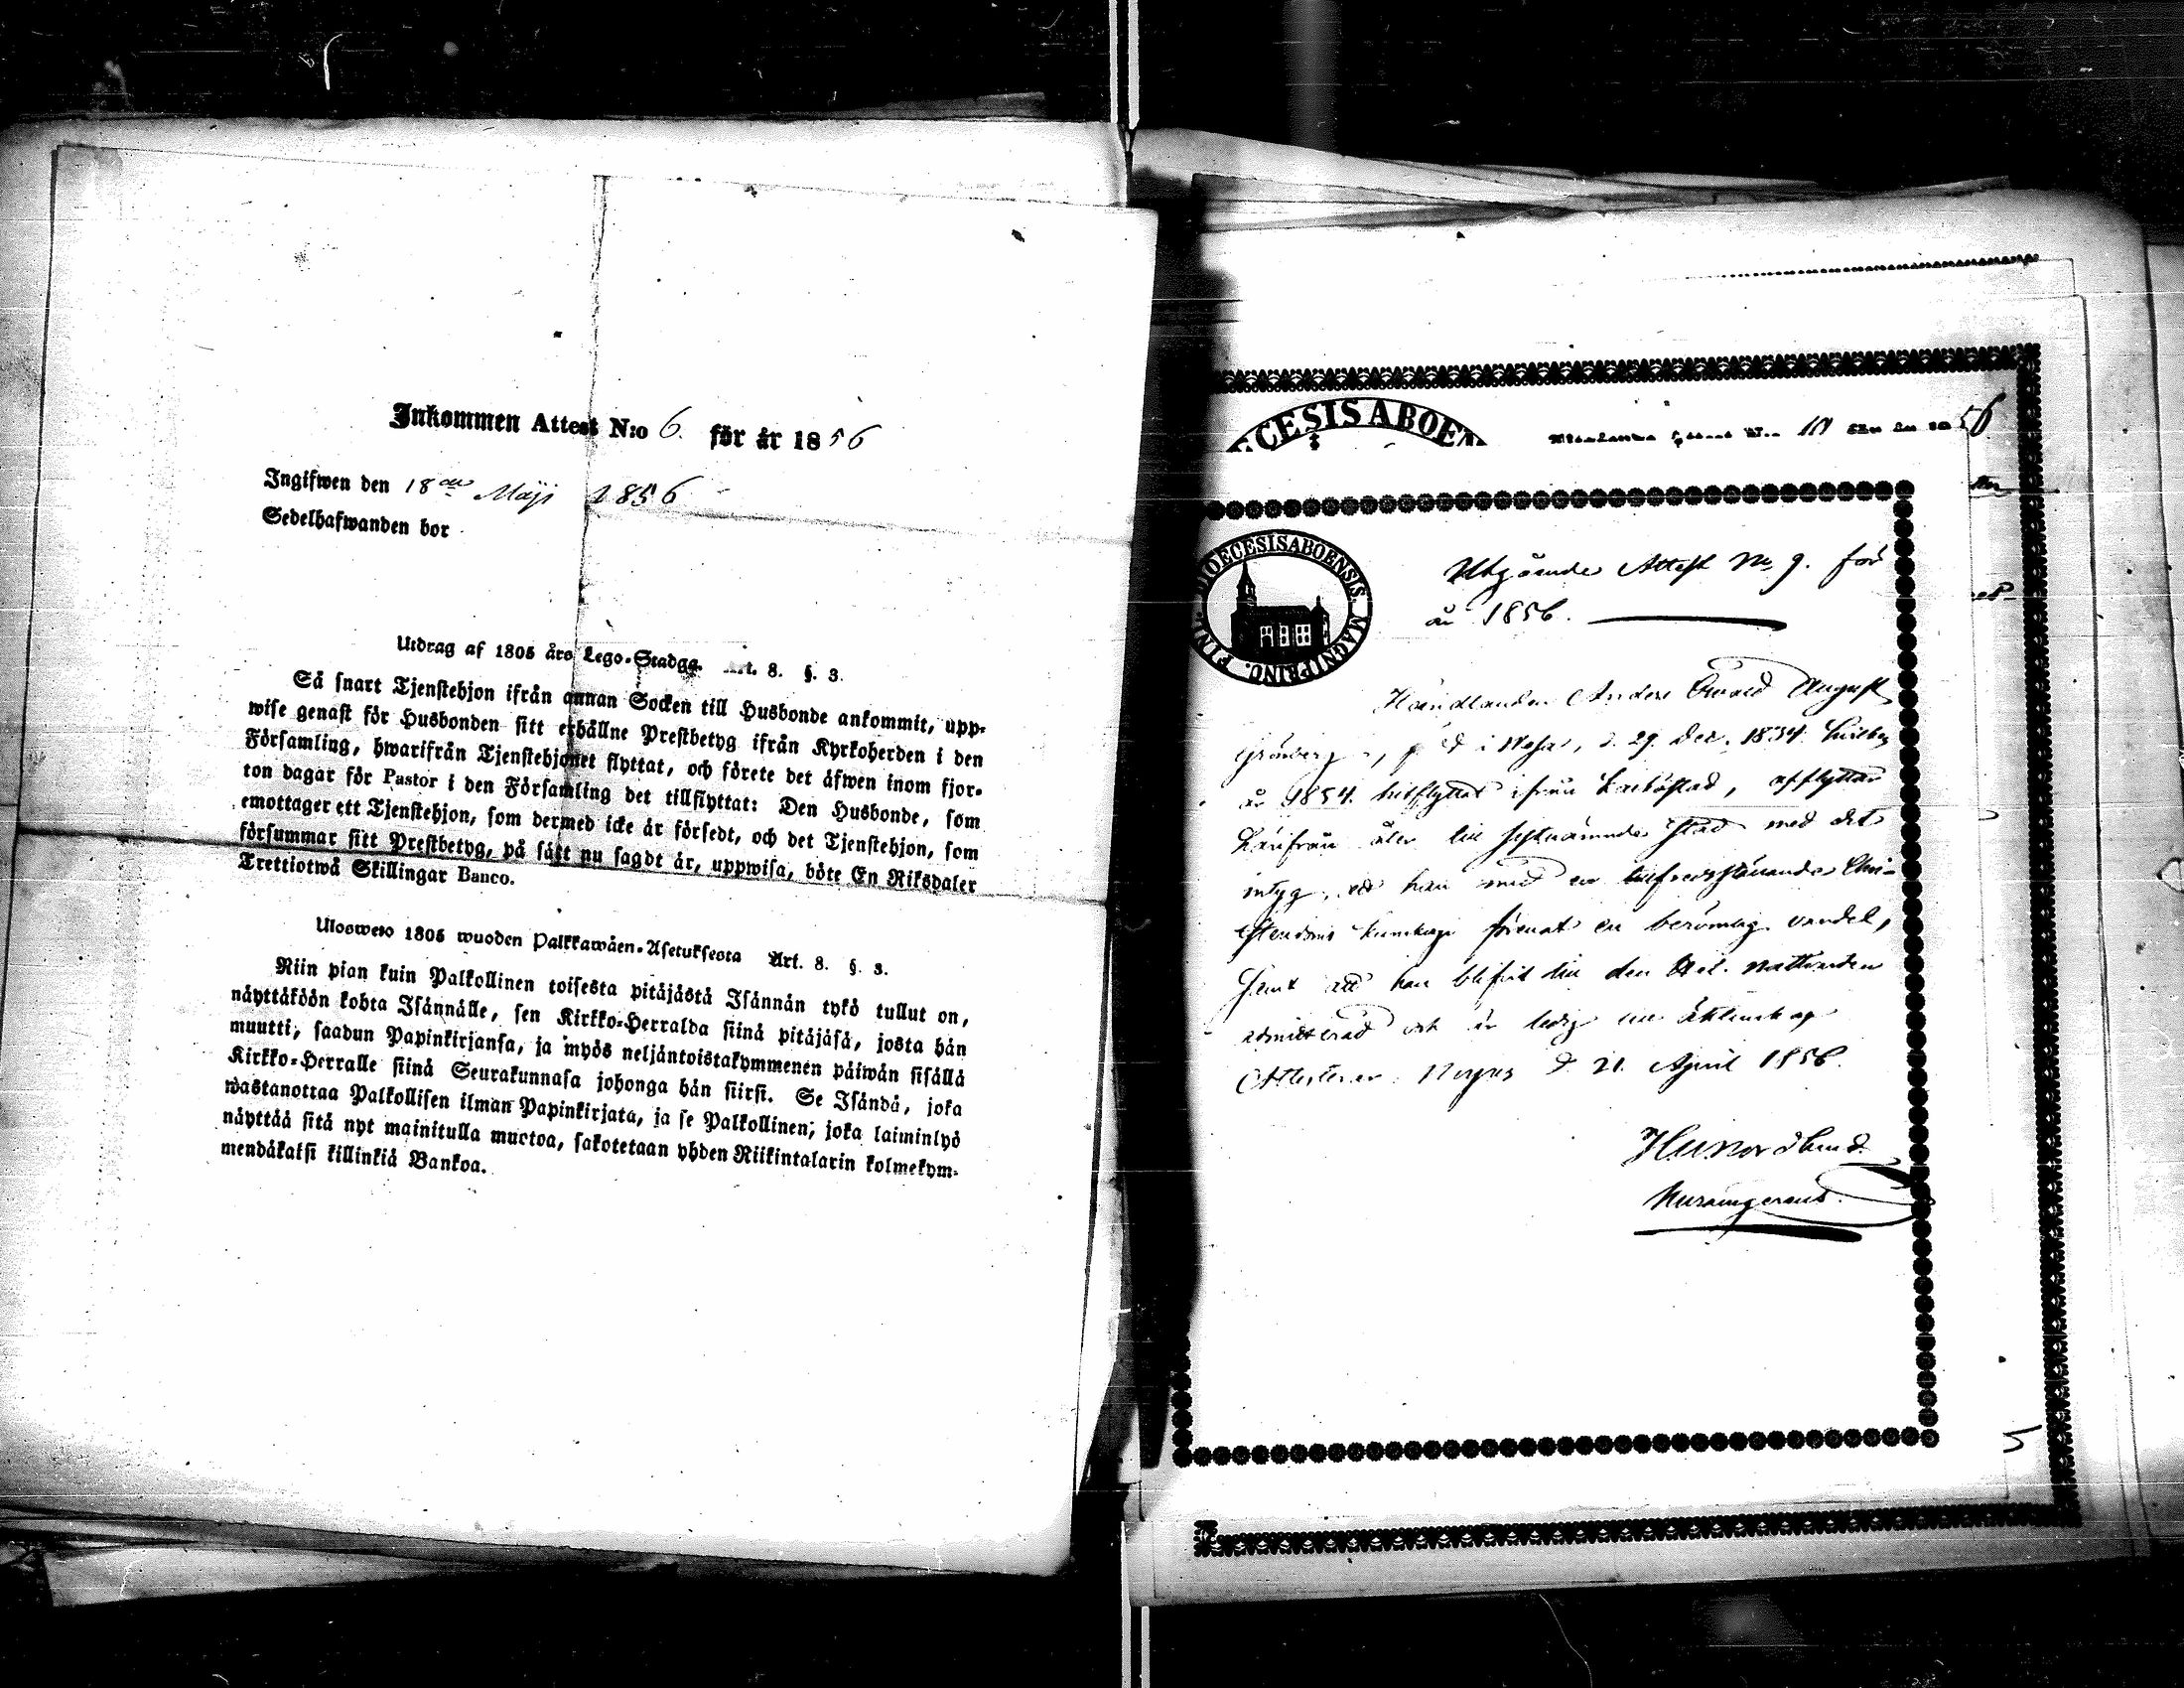 Inkommen Attest N:o 6. för år 1856
Ingifwen den 18de Maji 1856
Sedelhafwanden bor
Utdrag af 1805 års Lego-Stadga. Art. 8. §. 3.
Så snart Tjenstehjon ifrån annan Socken till Husbonde ankommit, upp-
wise genast för Husbonden sitt erhållne Prestbetyg ifrån Kyrkoherden i den
Församling, hwarifrån Tjenstehjonet flyttat, och förete det äfwen inom fjor-
ton dagar för Pastor i den Församling det tillflyttat: Den Husbonde, som
emottager ett Tjenstehjon, som dermed icke är försedt, och det Tjenstehjon, som
försummar sitt Prestbetyg, på sätt nu sagdt är, uppwisa, böte En Riksdaler
Trettiotwå Skillingar Banco.
Ulosweto 1805 wuoden Palkkawäen-Asetuksesta Art. 8. §. 3.
Niin pian kuin Palkollinen toisesta pitäjästä Isännän tykö tullut on,
näyttäköön kohta Isännälle, sen Kirkko-Herralda siinä pitäjäsä, josta hän
muutti, saadun Papinkirjansa, ja myös neljäntoistakymmenen päiwän sisällä
Kirkko-Herralle siinä Seurakunnasa johonga hän siirsi. Se Isändä, joka
wastanottaa Palkollisen ilman Papinkirjata, ja se Palkollinen, joka laiminlyö
näyttää sitä nyt mainitulla muotoa, sakotetaan yhden Riikintalarin kolmekym-
mendäkaksi killinkiä Bankoa.
ECESIS ABOEN
56
DIOECESIS ABOENSIS. MAGNI PRINC. FINL.
Utgående Attest No 9. för
år 1856.
Handlanden Anders August
Grönberg, född i Wasa, d. 29 Dec. 1834.
år 1854. hitflyttad ifrån, afflyttar
härifrån åter till sistnämnde stad med det
intyg, att han med en tillfredsställande Chri-
stendoms kunskap förenat en berömlig vandel,
samt att han blifvit till den Hel. Nattvarden
admitterad och är ledig till äktenskap
Attesterar d. 21. April 1856.